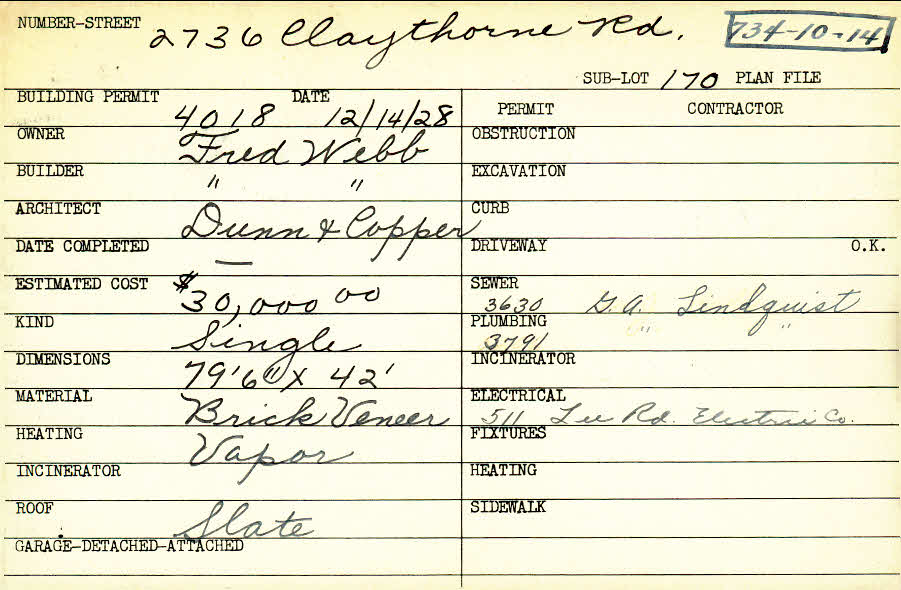 NUMBER-STREET 2736 Claythorne Rd. 734-10-14
SUB-LOT 170 PLAN FILE
BUILDING PERMIT 4018 DATE 12/14/28 PERMIT CONTRACTOR
OWNER Fred Webb OBSTRUCTION
BUILDER " " EXCAVATION
ARCHITECT Dunn & Copper CURB
DATE COMPLETED — DRIVEWAY O.K.
ESTIMATED COST $30,000 00 SEWER 3630 G.A. Lindquist
KIND Single PLUMBING 3791 " "
DIMENSIONS 79'6" X 42' INCINERATOR
MATERIAL Brick Veneer ELECTRICAL 511 Lee Rd. Electric Co.
HEATING Vapor FIXTURES
INCINERATOR HEATING
ROOF Slate SIDEWALK
GARAGE-DETACHED-ATTACHED